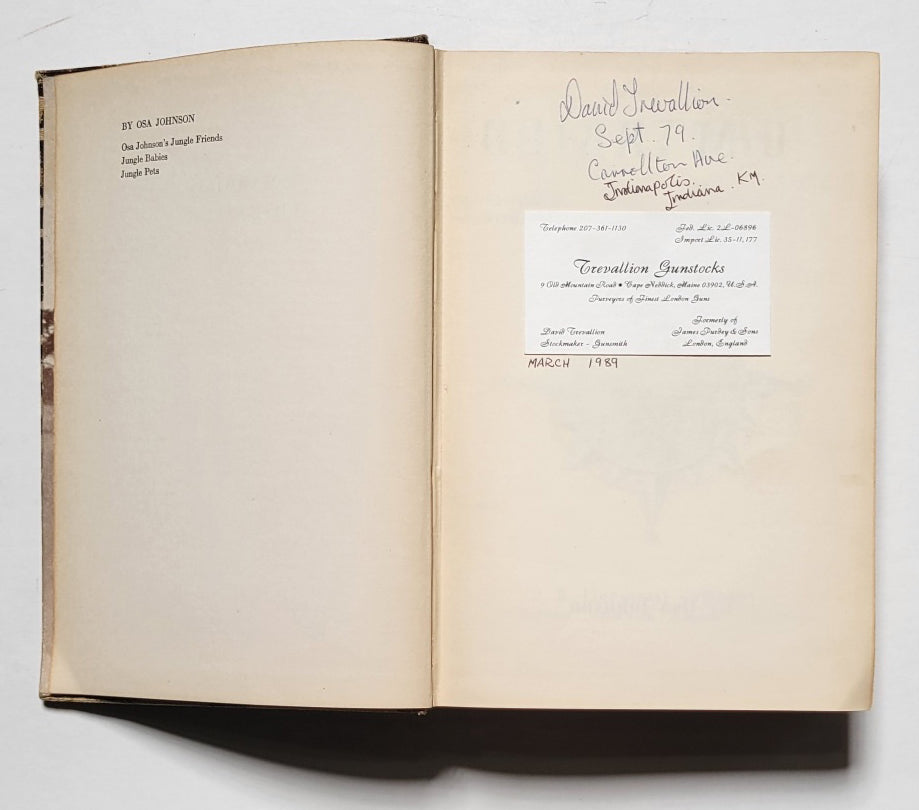 BY OSA JOHNSON
Osa Johnson's Jungle Friends
Jungle Babies
Jungle Pets
David Trevallion.
Sept. 79.
Carrollton Ave.
Indianapolis.
Indiana. KM.
Telephone 207-361-1130
Fed. Lic. 2L-06896
Import Lic. 35-11,177
Trevallion Gunstocks
9 Old Mountain Road ★ Cape Neddick, Maine 03902, U.S.A.
Purveyors of Finest London Guns
Formerly of
David Trevallion James Purdey & Sons
Stockmaker - Gunsmith London, England
MARCH 1989